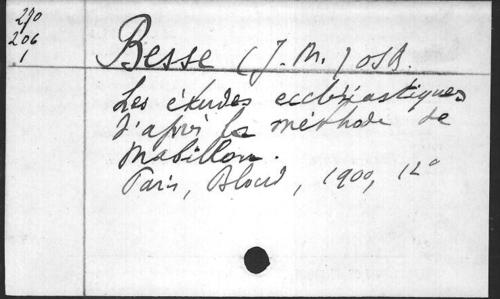 270
206
1
Besse (J. M.) OSB.
Les études ecclésiastiques
d'après la méthode de
Mabillon.
Paris, Bloud, 1900, 12°